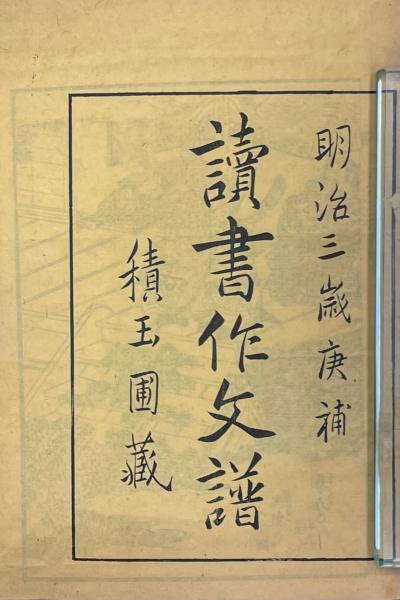 明治三歳庚補
讀書作文譜
積玉圃藏